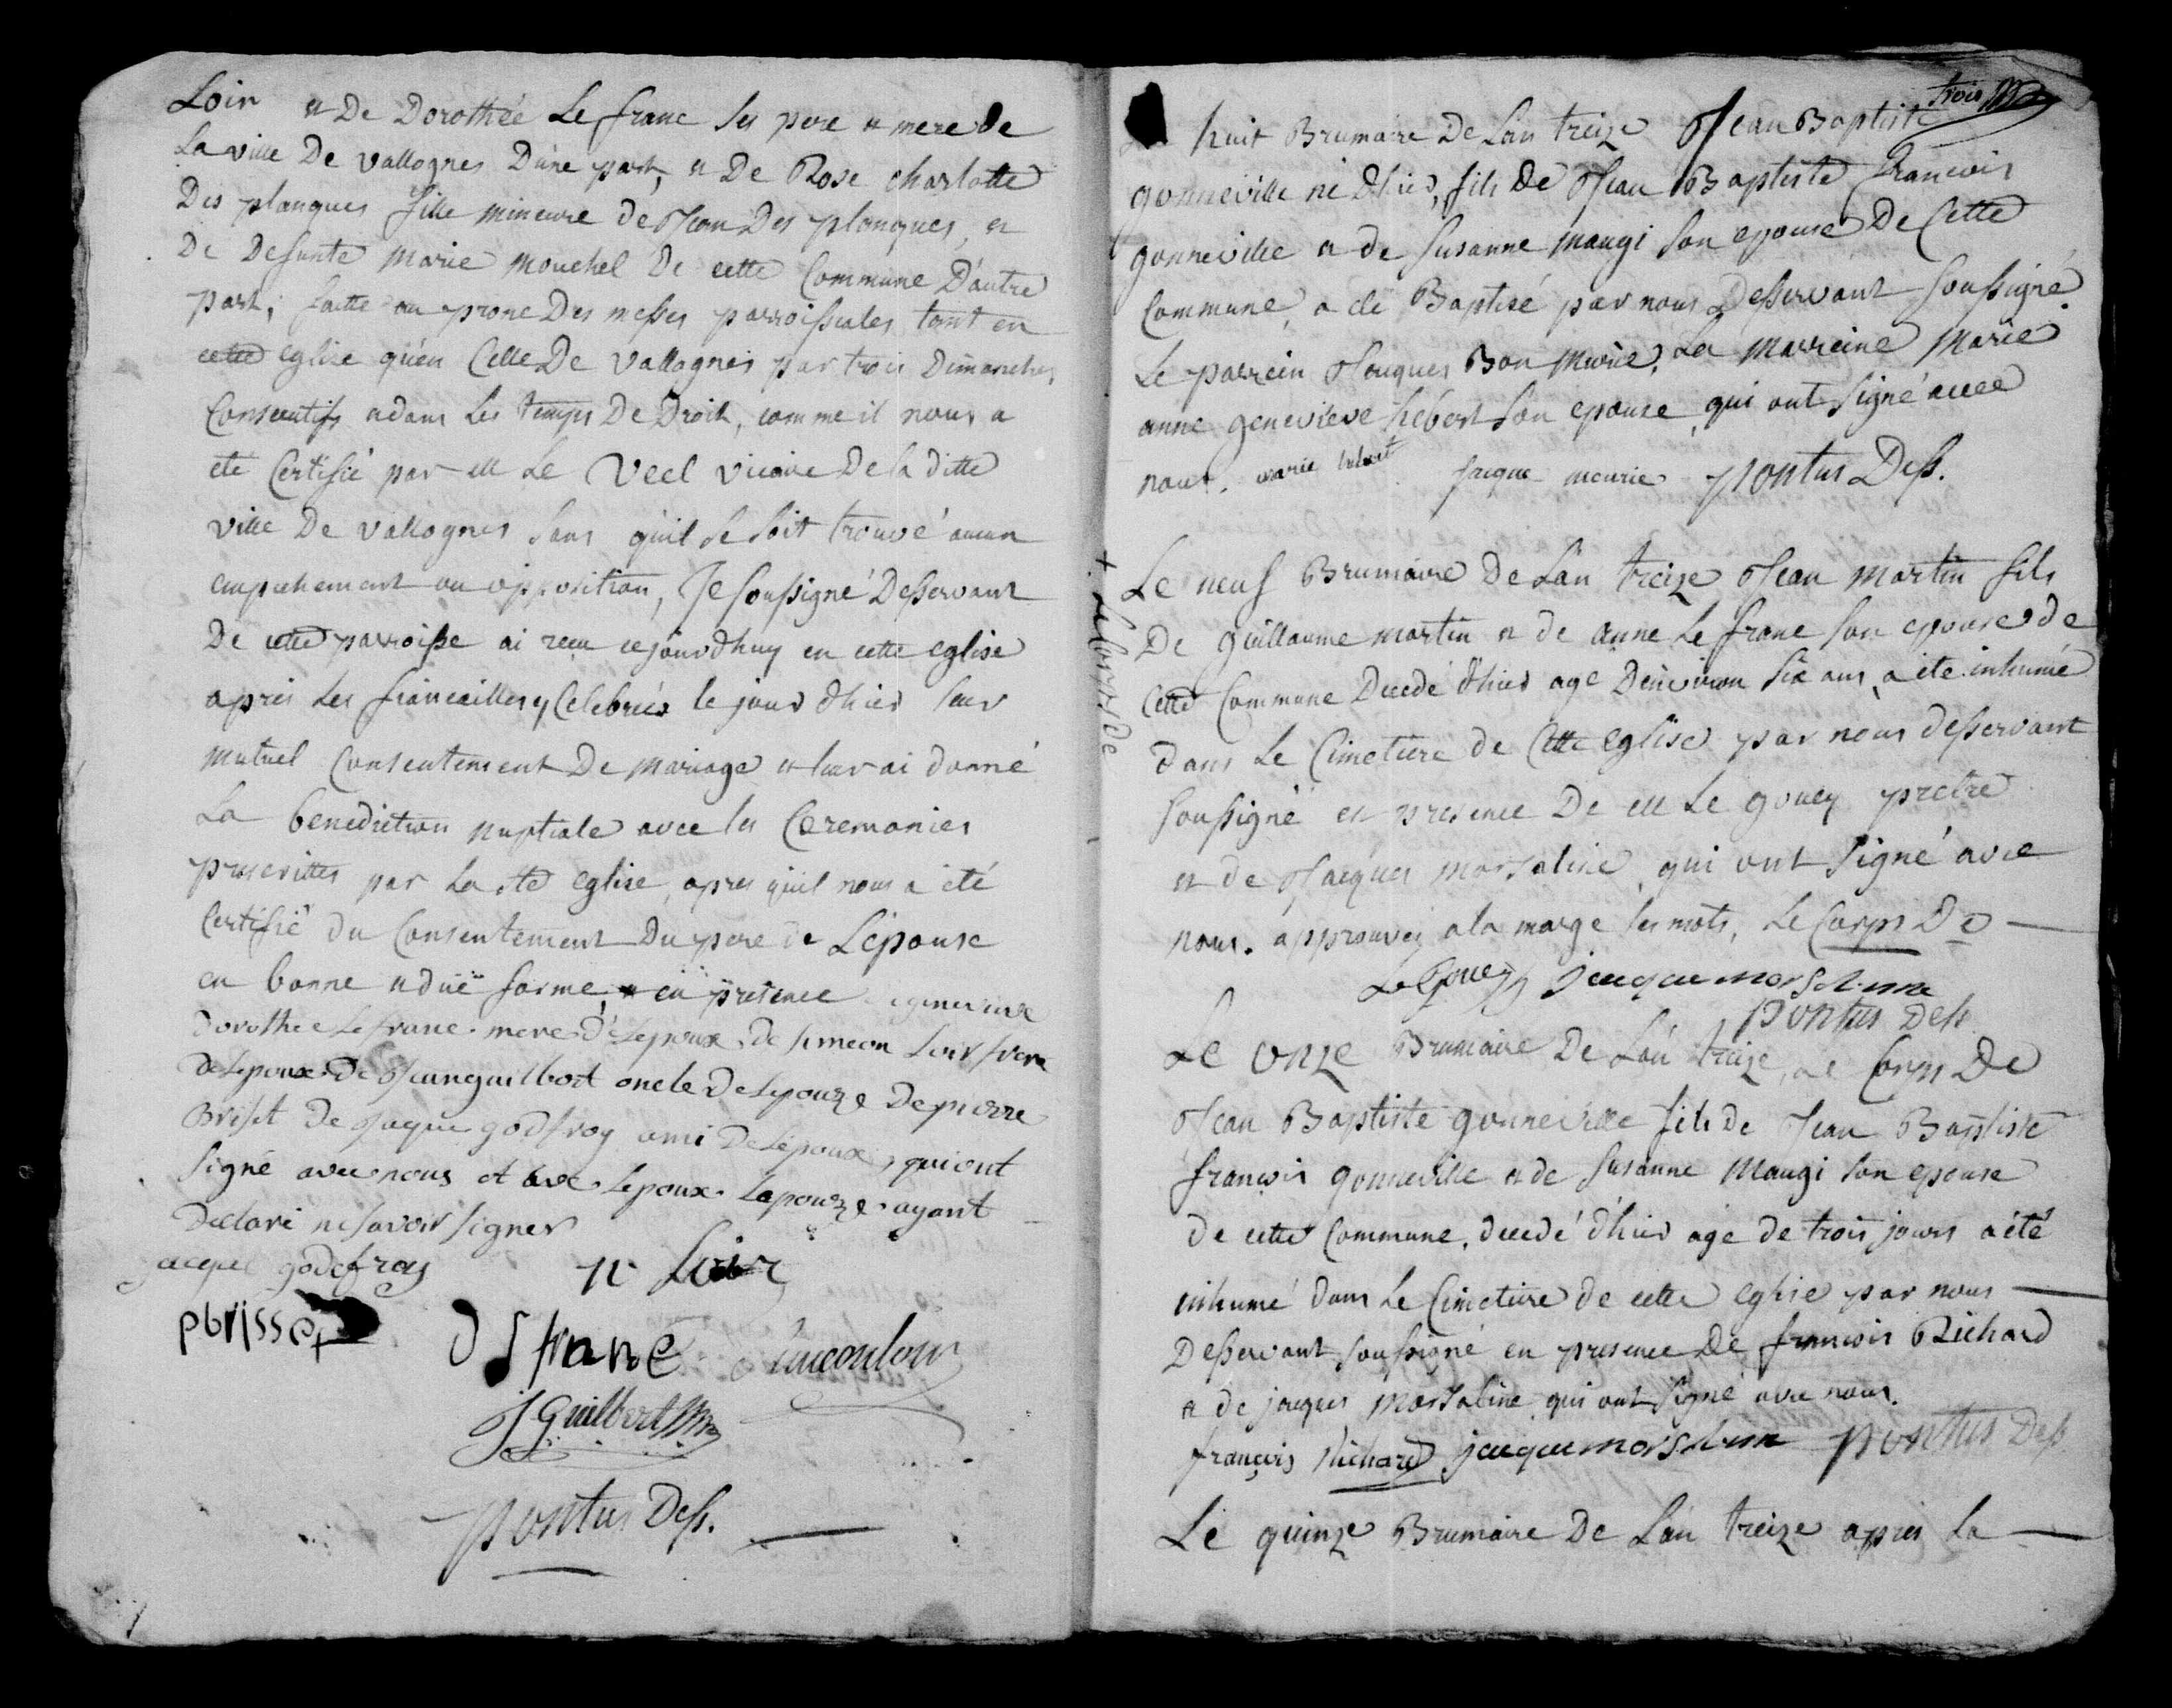 Loir et De Dorothée Le franc ses pere et mere de
La ville De vallognes Dúne part, et De Rose charlotte
Des planques fille mineure de Jean Des planques, et
De Defunte Marie Mouchel De cette Commune D'autre
part, faitte au prone Des messes parroissiales tant en
cette eglise qu'en Celle De Vallognes par trois Dimanches
Consecutifs et dans Les temps De Droit, comme il nous a
eté Certifié par M Le Veel vicaire De la ditte
ville De vallognes sans qu'il se soit trouvé aucun
empechement ou opposition, Je soussigné Desservant
De cette parroisse ai recu cejourdhuy en cette eglise
après les fiancailles y Celebrées le jour d'hier leur
mutuel Consentement De mariage et leur ai donné
La benediction nuptiale avec les Ceremonies
prescrittes par La ste eglise, apres qu'il nous a été
Certifié du Consentement Du pere de L'épouse
en bonne et duë forme, en presence
Dorothée Lefranc mere de Lepoux De simeon Loir frere
de Lepoux De Jean guilbert oncle De Lepouze De pierre
Briset De Jaque godfroy ami De Lépoux, qui ont
signé avec nous et avec Lepoux Lapouze ayant
Declaré ne savoir signer
jacque godefroy Loir
pbrisset
D L franc simeon loir
J Guilbert
Pontus Dess.
trois
huit Brumaire De Lan treize Jean Baptiste
gonneville né d'hier, fils De Jean Baptiste Francois
gonneville et de Susanne Maugi son epouse De Cette
Commune, a eté Baptisé par nous Desservant soussigné
Le parrein Jacques Bon Meurie, La Marreine Marie
anne genevieve hébert son epouse, qui ont signé avec
nous. marie hebert jaque meurie Pontus Dess.
Le neuf Brumaire De Lan treize Jean Martin fils
De guillaume Martin et de anne Le franc son epouse de
Cette Commune Decedé d'hier agé D'environ six ans, a été inhumé
dans Le Cimetiere de Cette eglise par nous desservant
soussigné en presence De M Le gouey prêtre
et de Jacques Morsaline qui ont signé avec
nous. approuvez a la marge les mots, Le Corps De
+ Le Corps de
LeGouey jacque morsaline
Pontus Dess
Le onze Brumaire De Lan treize, Le Corps De
Jean Baptiste gonneville fils De Jean Baptiste
françois gonneville et de Susanne Maugi son epouse
de cette Commune, decedé d'hier agé de trois jours a été
inhumé dans Le Cimetiere de cette eglise par nous
Desservant soussigné en presence De francois Richard
et de jacques Morsaline qui ont signé avec nous.
françois Richard jacque morsaline Pontus Dess
Le quinze Brumaire De Lan treize après La